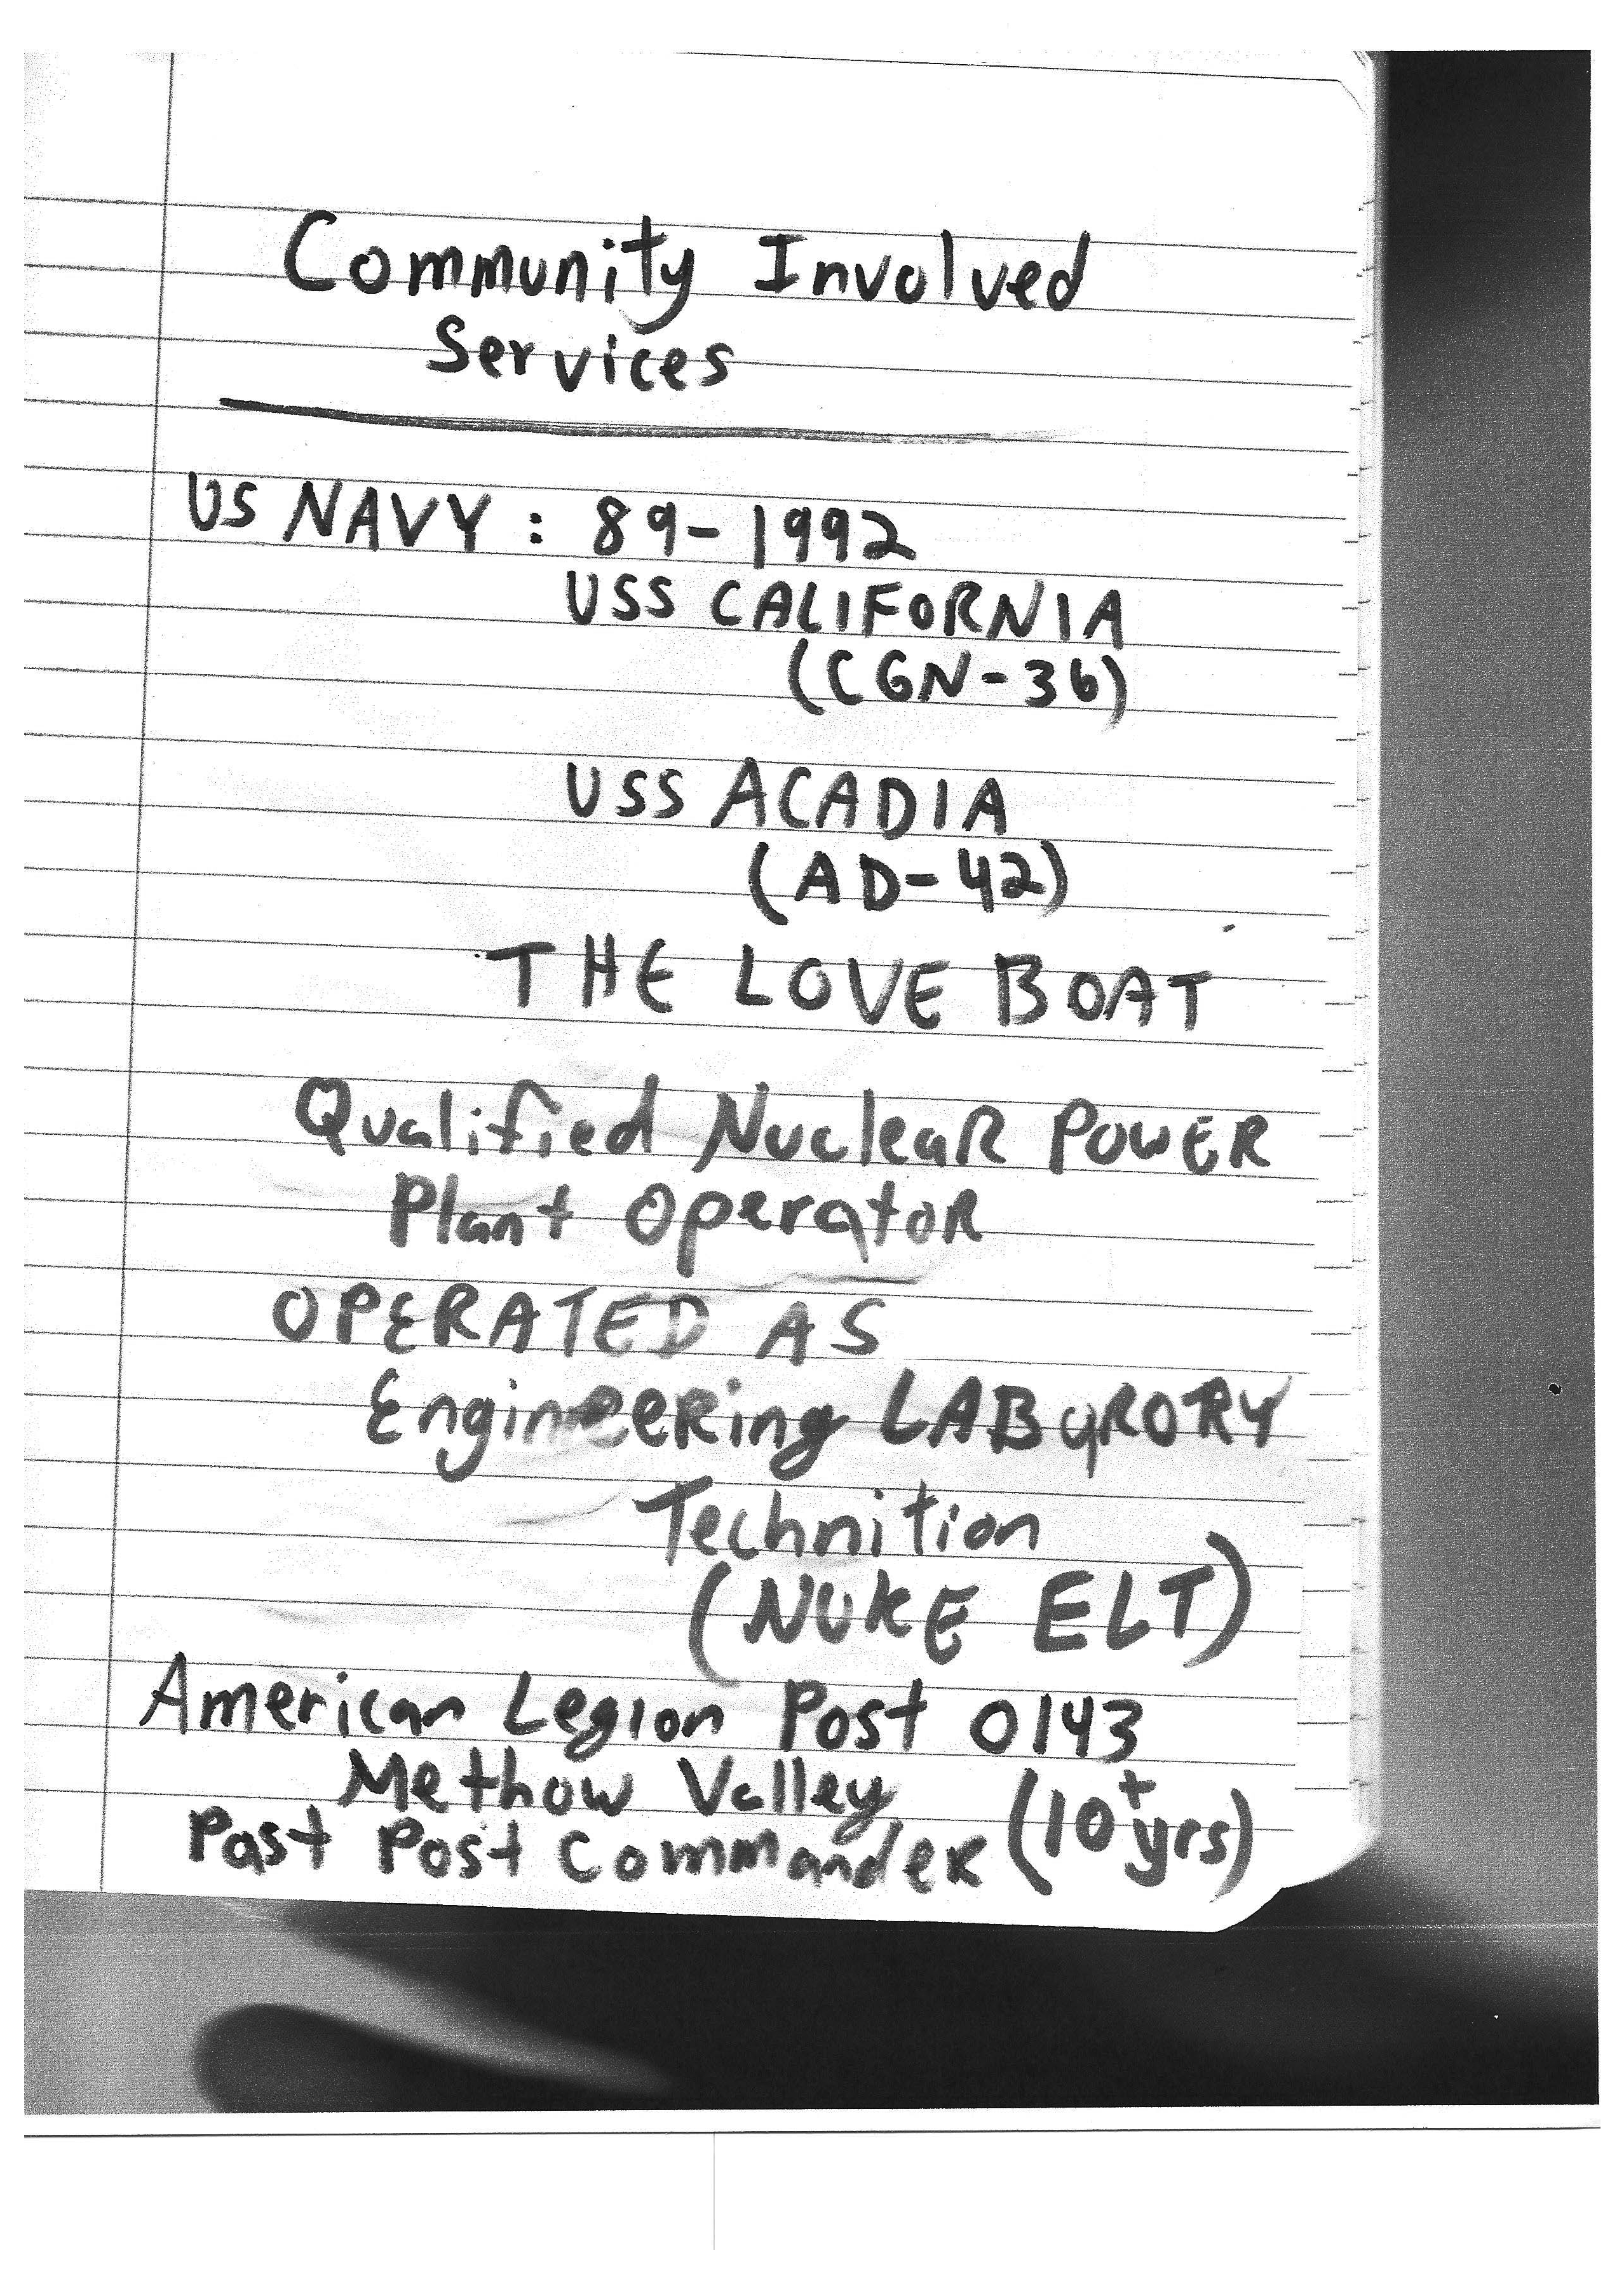 Community Involved
Services
US NAVY : 89-1992
USS CALIFORNIA
(CGN-36)
USS ACADIA
(AD-42)
THE LOVE BOAT
Qualified NucleaR POWER
Plant OperatoR
OPERATED AS
EnginEERing LABqRORY
Technition
(NUKE ELT)
American Legion Post 0143
Methow Valley
Past Post CommandeR (10+ yrs)